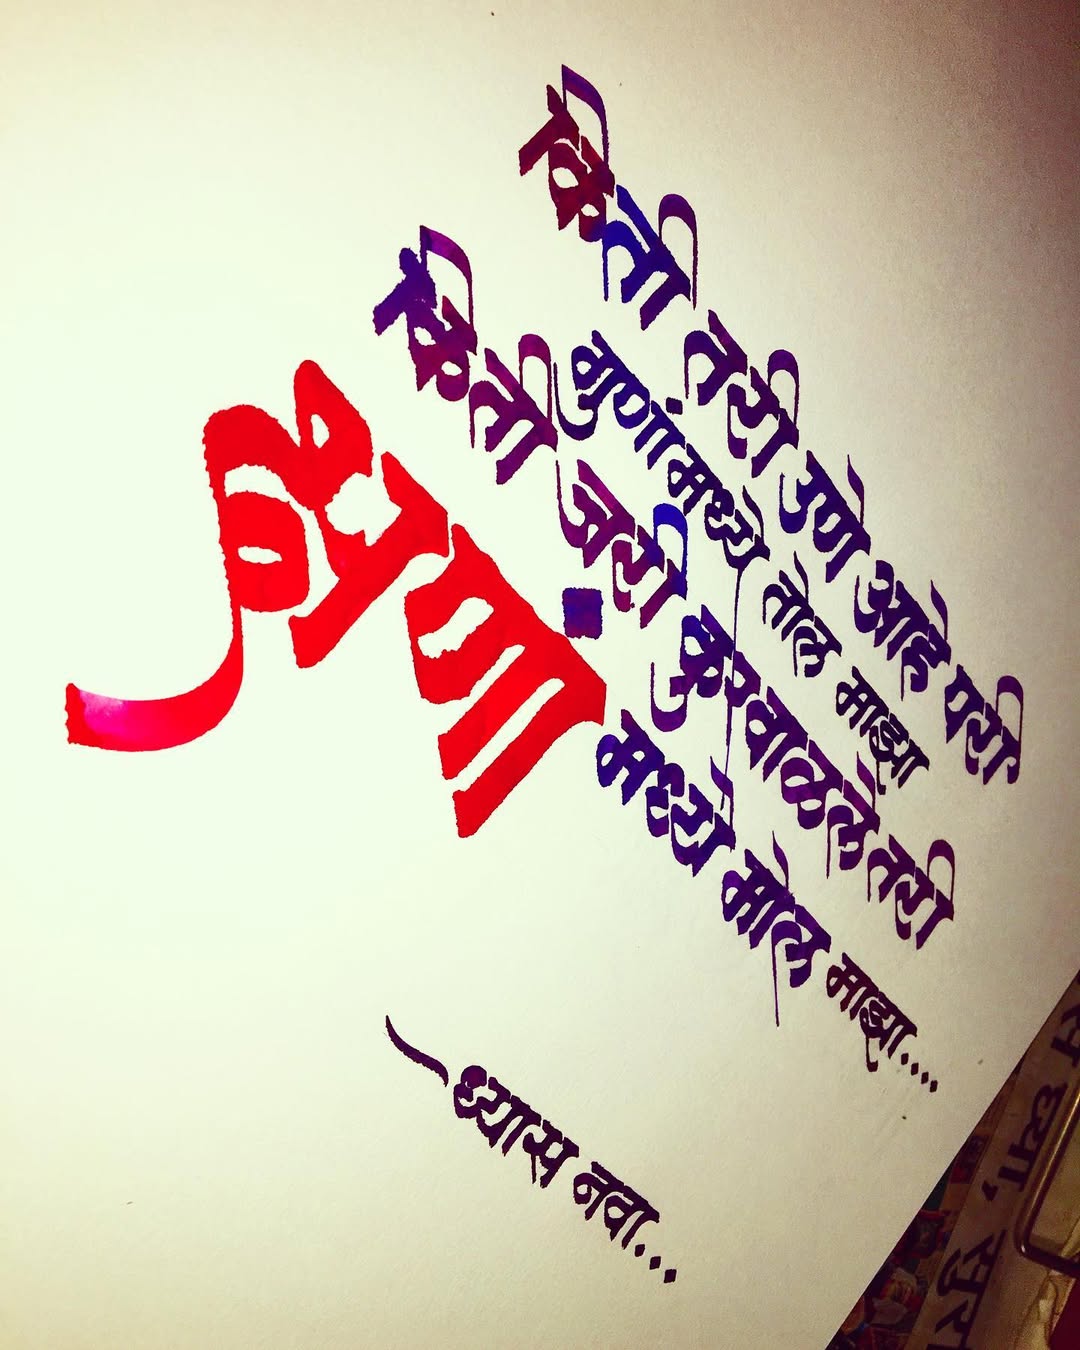 किती तरी उणे आहे परी
गुणांमध्ये तोल माझा
किती जरी कुरवाळले तरी
क्षणांमध्ये मोल माझा....
~ ध्यास नवा...